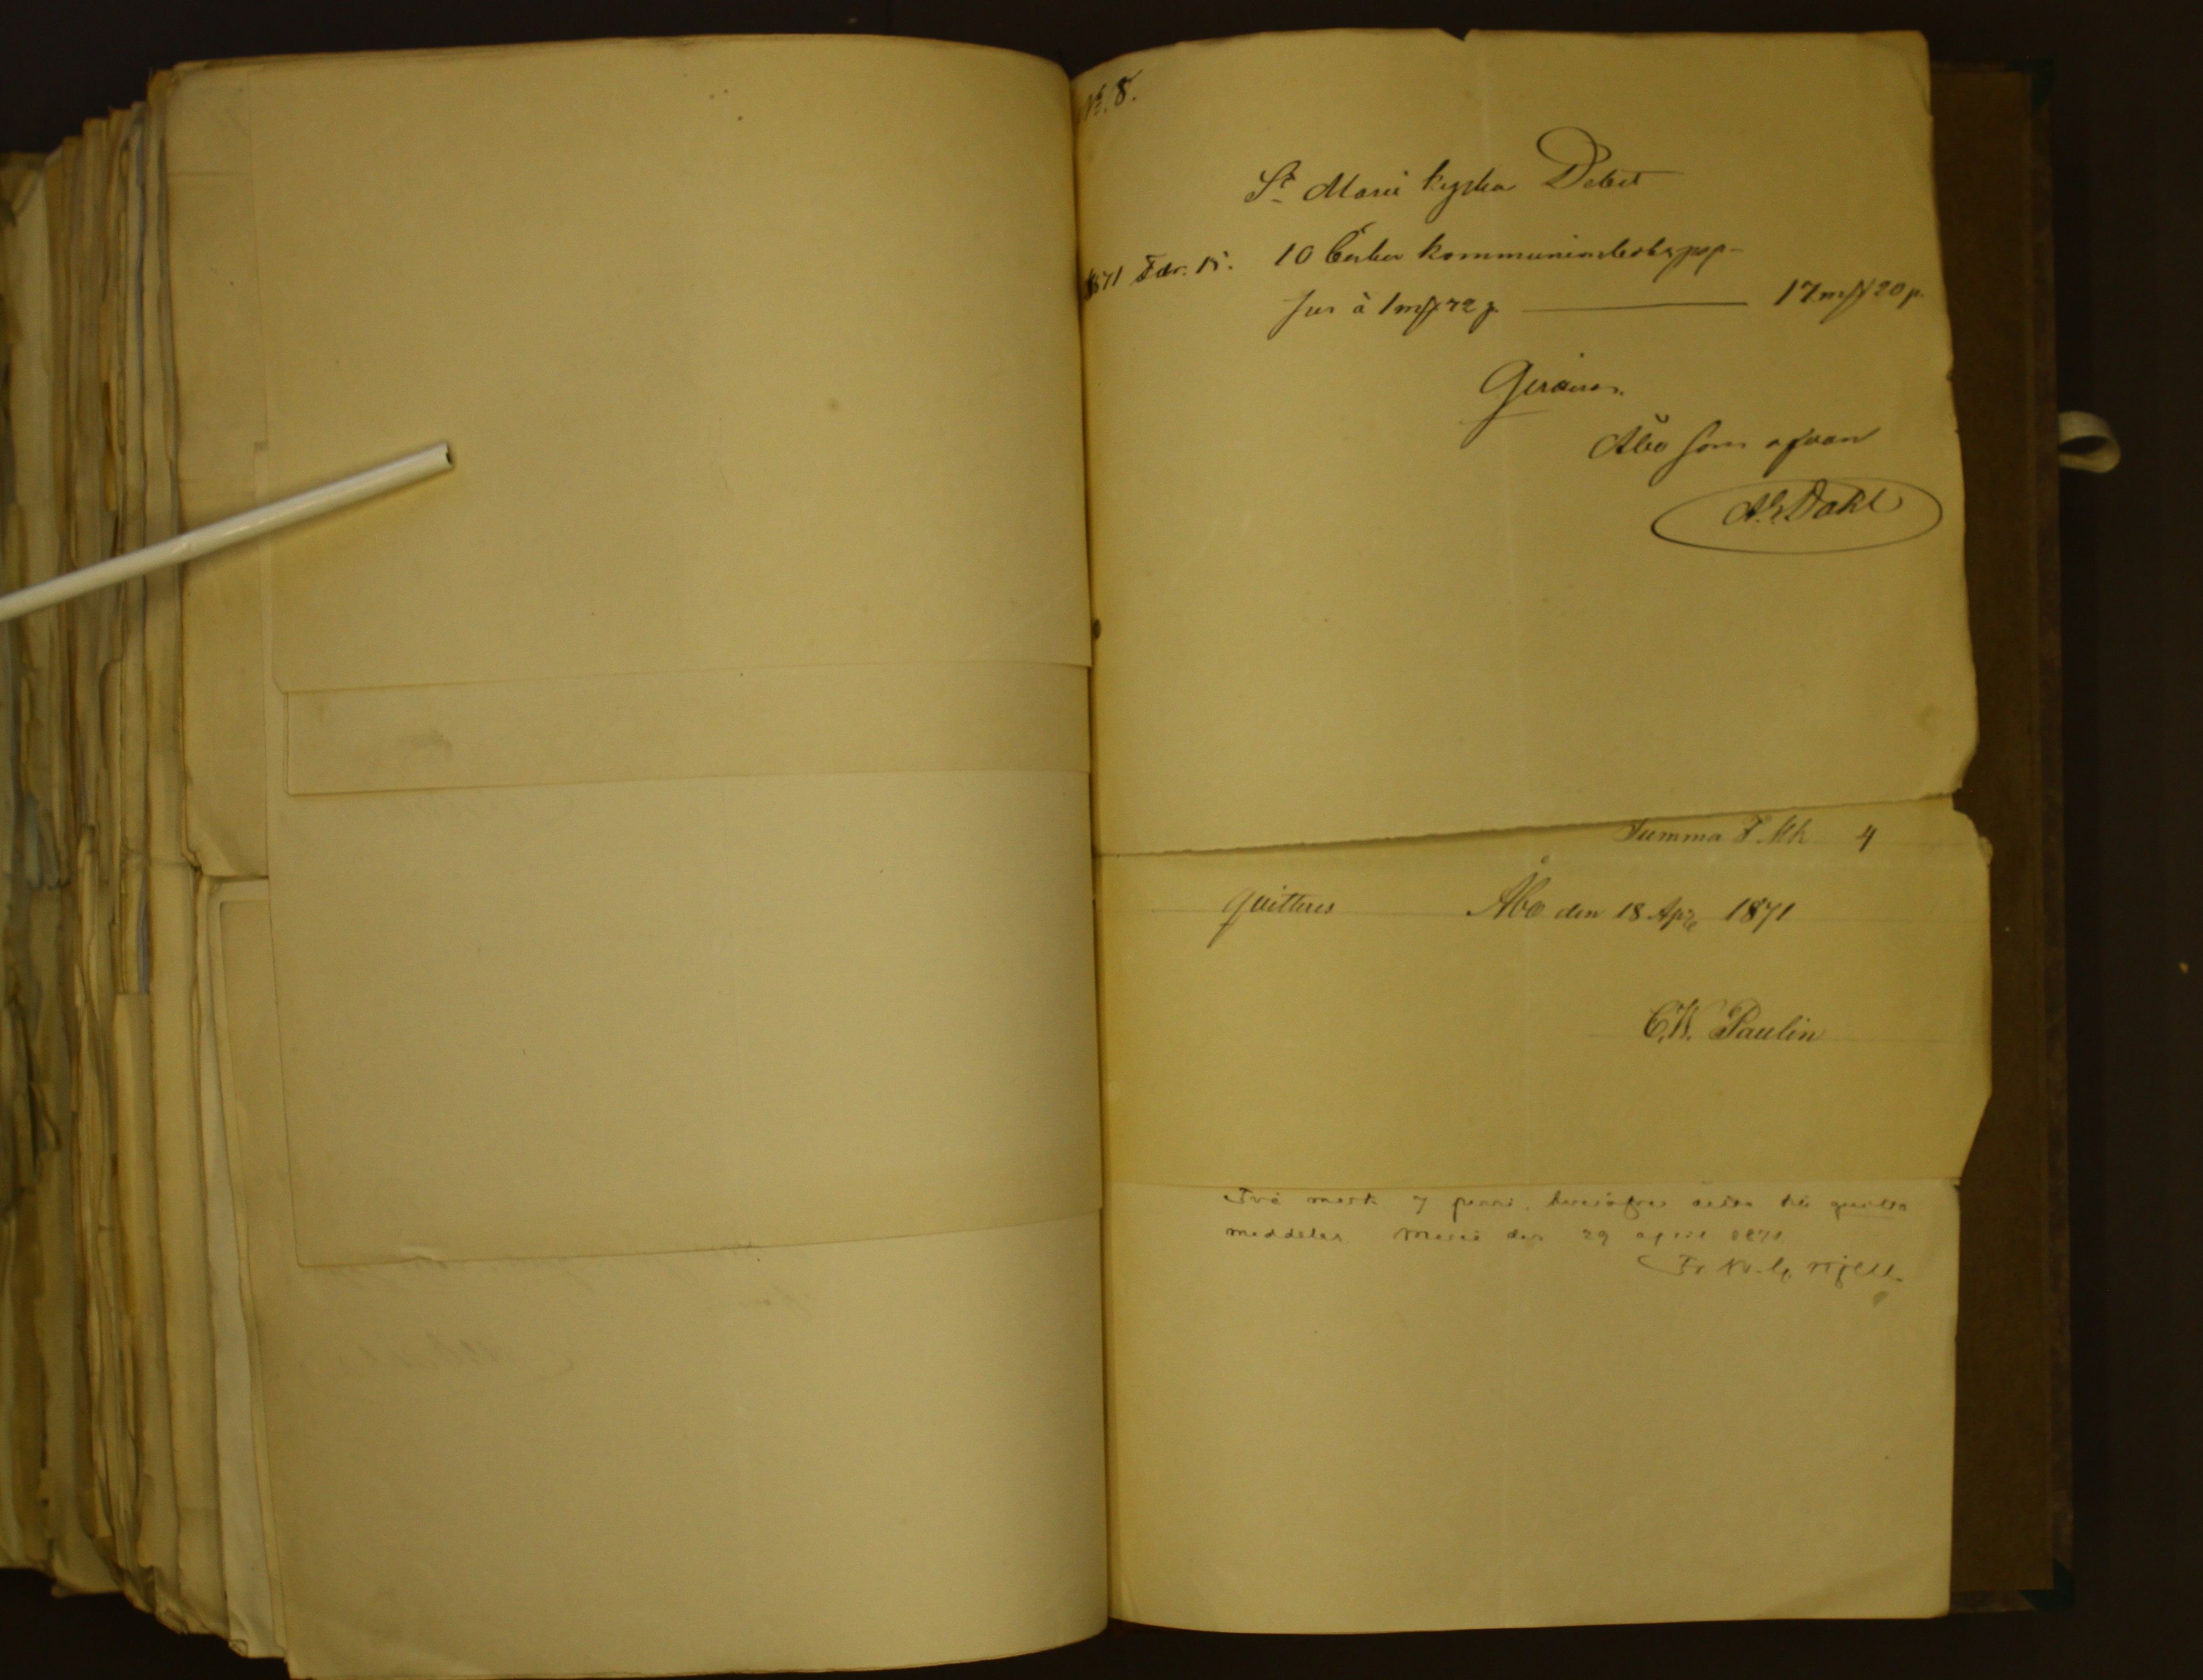 N:o 8.
S:t Marie kyrka Debet
1871 Febr. 15. 10 Exter kommunionbokspap-
per à 1 mk 72 p. 17 mk 20 p.
Åbo som ofvan
A. E. Dahl
Summa F. Mk 4
Quitteres Åbo den 18 Apr 1871
C. W. Paulin
Två mark 7 penni, hvaröfver detta till quitto
meddelas Marie den 29 april 1871